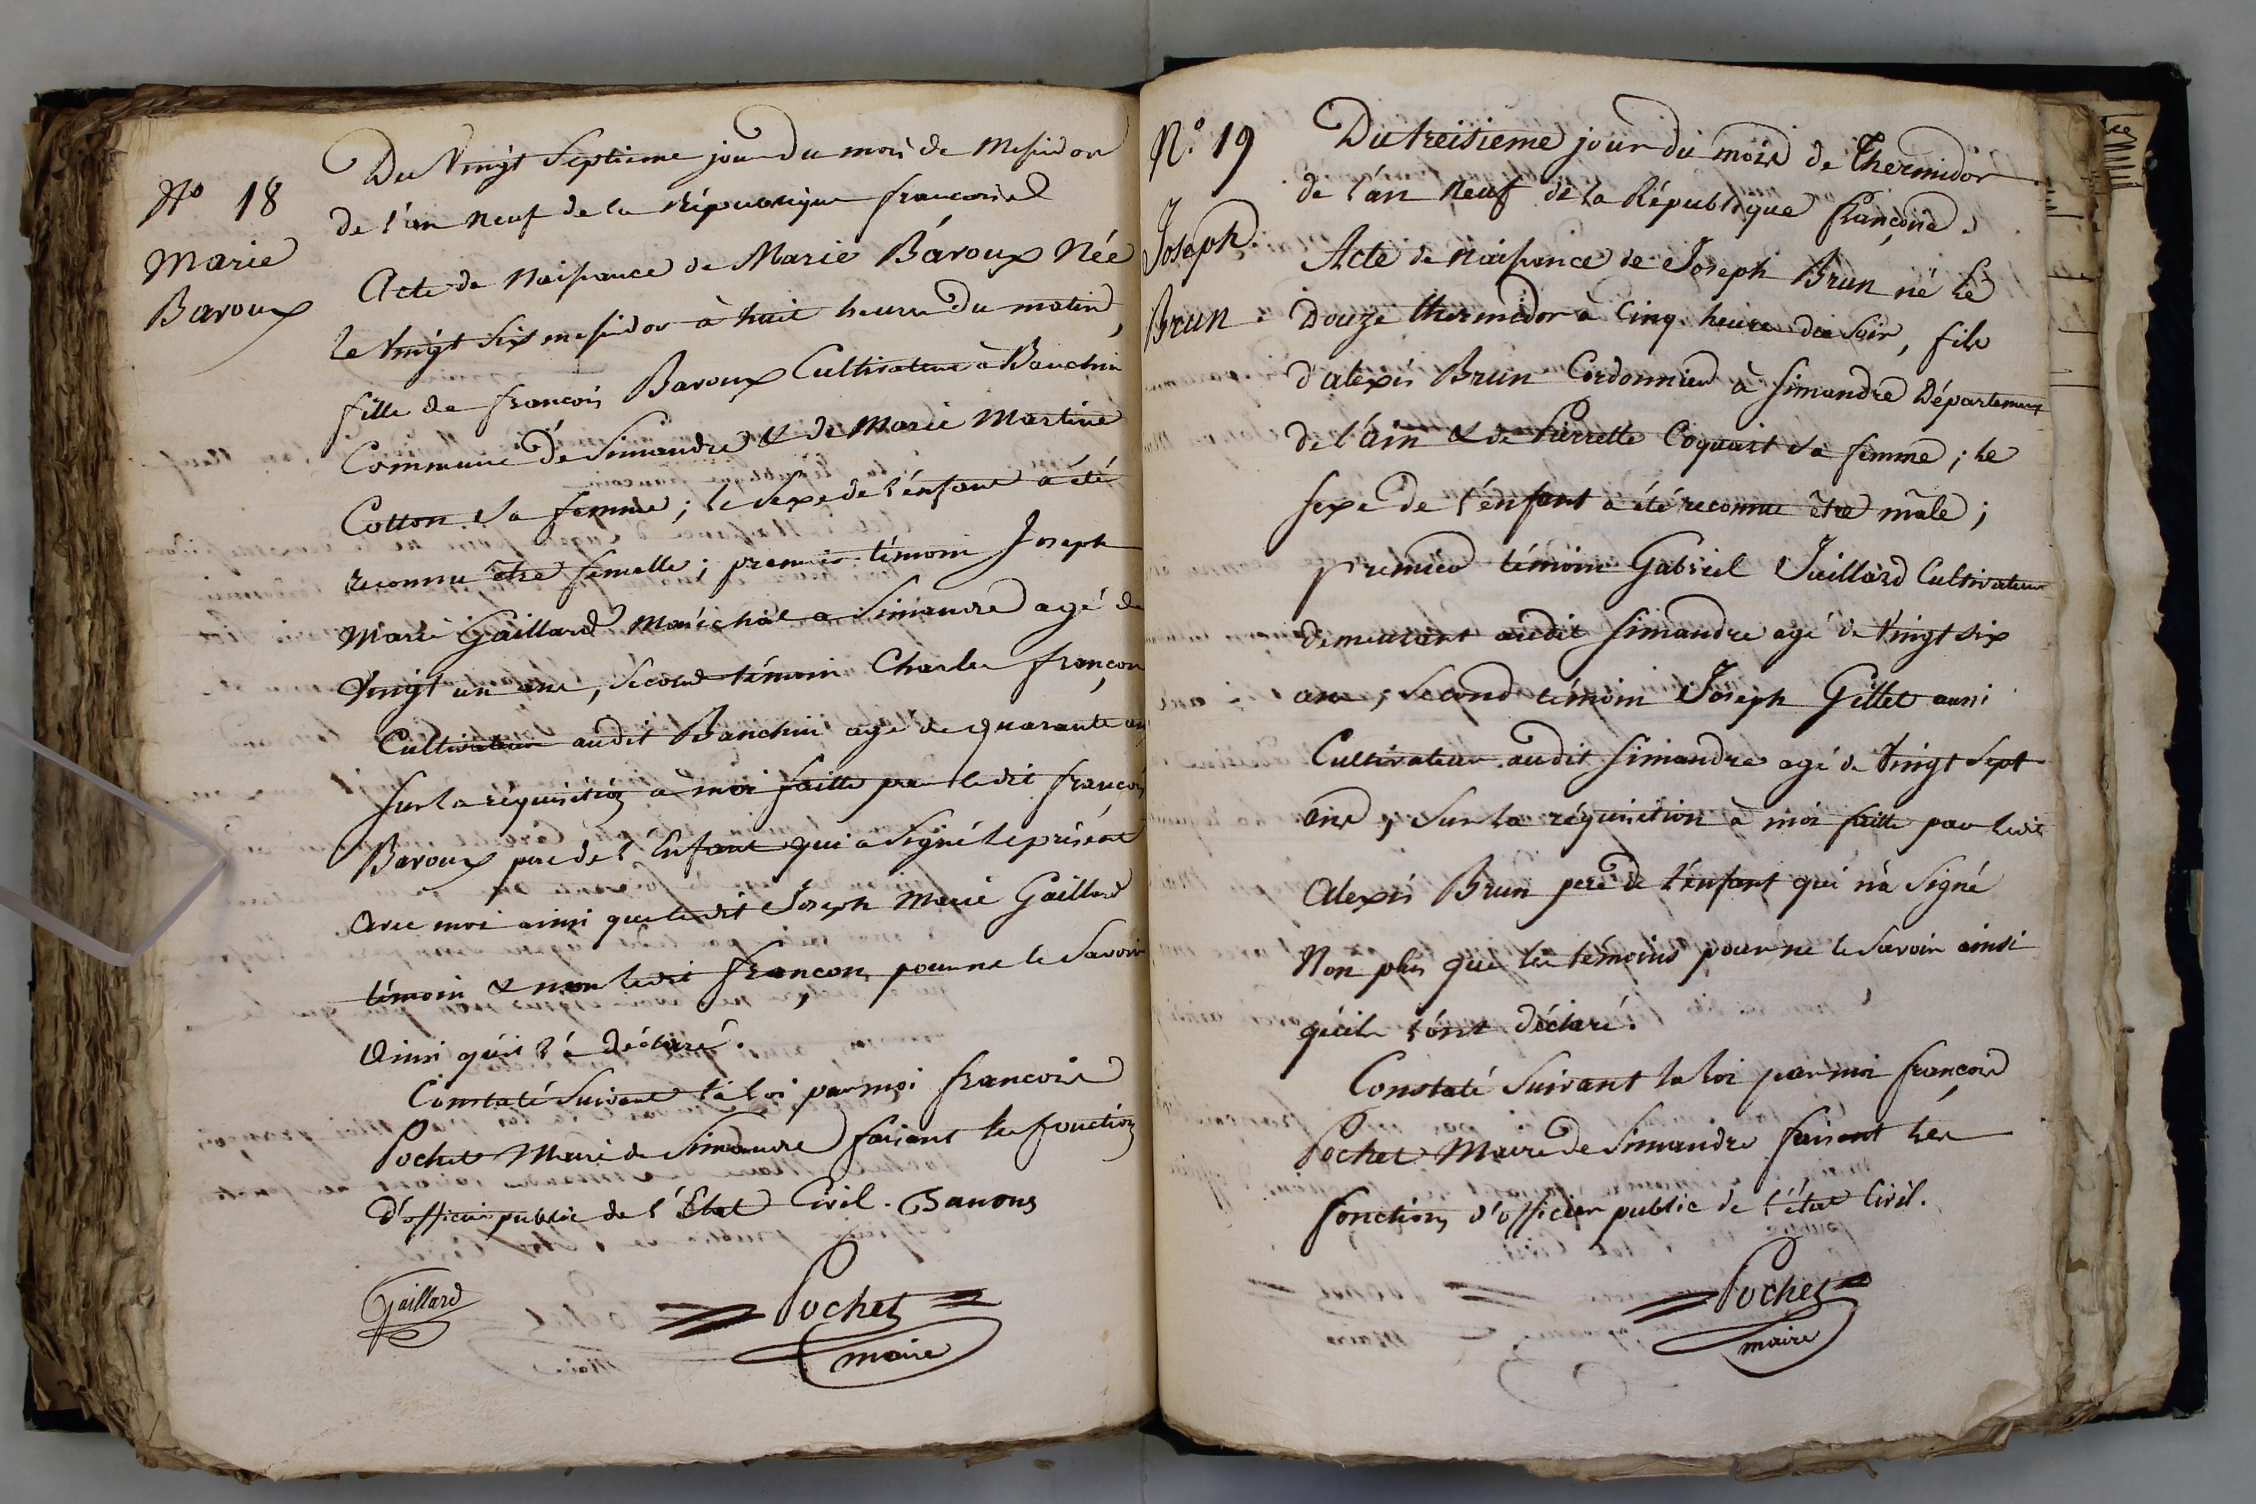 No 18
Marie
Baroux
Du Vingt Septieme jour du mois de Messidor
de l'an neuf de la République francoise
Acte de Naissance de Marie Baroux Née
le Vingt Six messidor à huit heure du matin,
fille de françois Baroux Cultivateur à Banchin
Commune de Simandre & de Marie Martine
Cotton sa femme ; le sexe de l'énfant a été
reconnu être femelle ; premier témoin Joseph
Marie Gaillard Maréchal a Simandre agé de
Vingt un ans, second témoin Charles françon
Cultivateur audit Banchin agé de quarante ans
Sur la réquisition à moi faitte par ledit françois
Baroux pere de l'Enfant qui a Signé le présent
avec moi ainsi que ledit Joseph Marie Gaillard
témoin & non ledit françon pour ne le Savoir
Ainsi qu'il l'a déclaré.
Constaté Suivant la loi par moi francois
Pochet Maire de Simandre faisant les fonctions
d'officier public de l'Etat Civil. Banoux
Gaillard
Pochet
maire
N.º 19
Joseph
Brun
Du treisieme jour du mois de Thermidor
de l'an neuf de la République françoise.
Acte de Naissance de Joseph Brun né le
Douze thermidor à Cinq heure du soir, fils
d'alexis Brun Cordonnier à Simandre Département
de l'ain & de Pierrette Coquart sa femme ; le
sexe de l'énfant a été reconnu être mâle ;
premier témoin Gabriel Juillard Cultivateur
demeurant audit Simandre agé de Vingt six
ans, second témoin Joseph Gillet aussi
Cultivateur audit Simandre agé de Vingt Sept
ans, Sur la réquisition à moi faitte par ledit
Alexis Brun pere de l'énfant qui n'a Signé
Non plus que les témoins pour ne le Savoir ainsi
qu'ils l'ont déclaré.
Constaté Suivant la loi par moi françois
Pochet Maire de Simandre faisant les
fonctions d'officier public de l'état Civil.
Pochet
maire